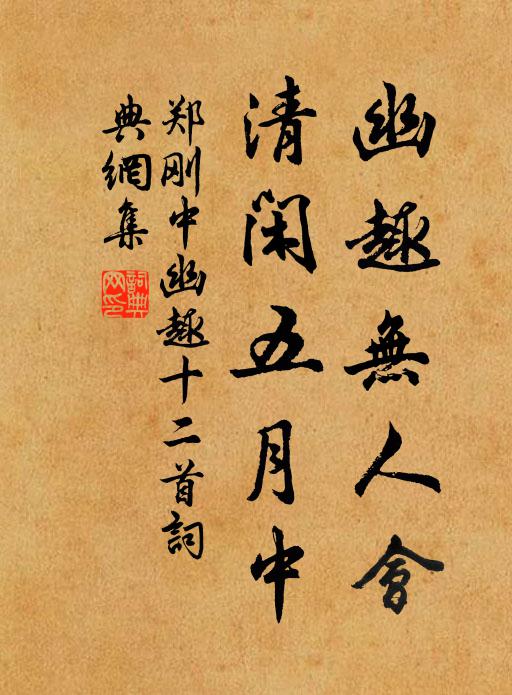 幽趣無人會
清閑五月中
郑刚中幽趣十二首詞
典網集
詞典网印